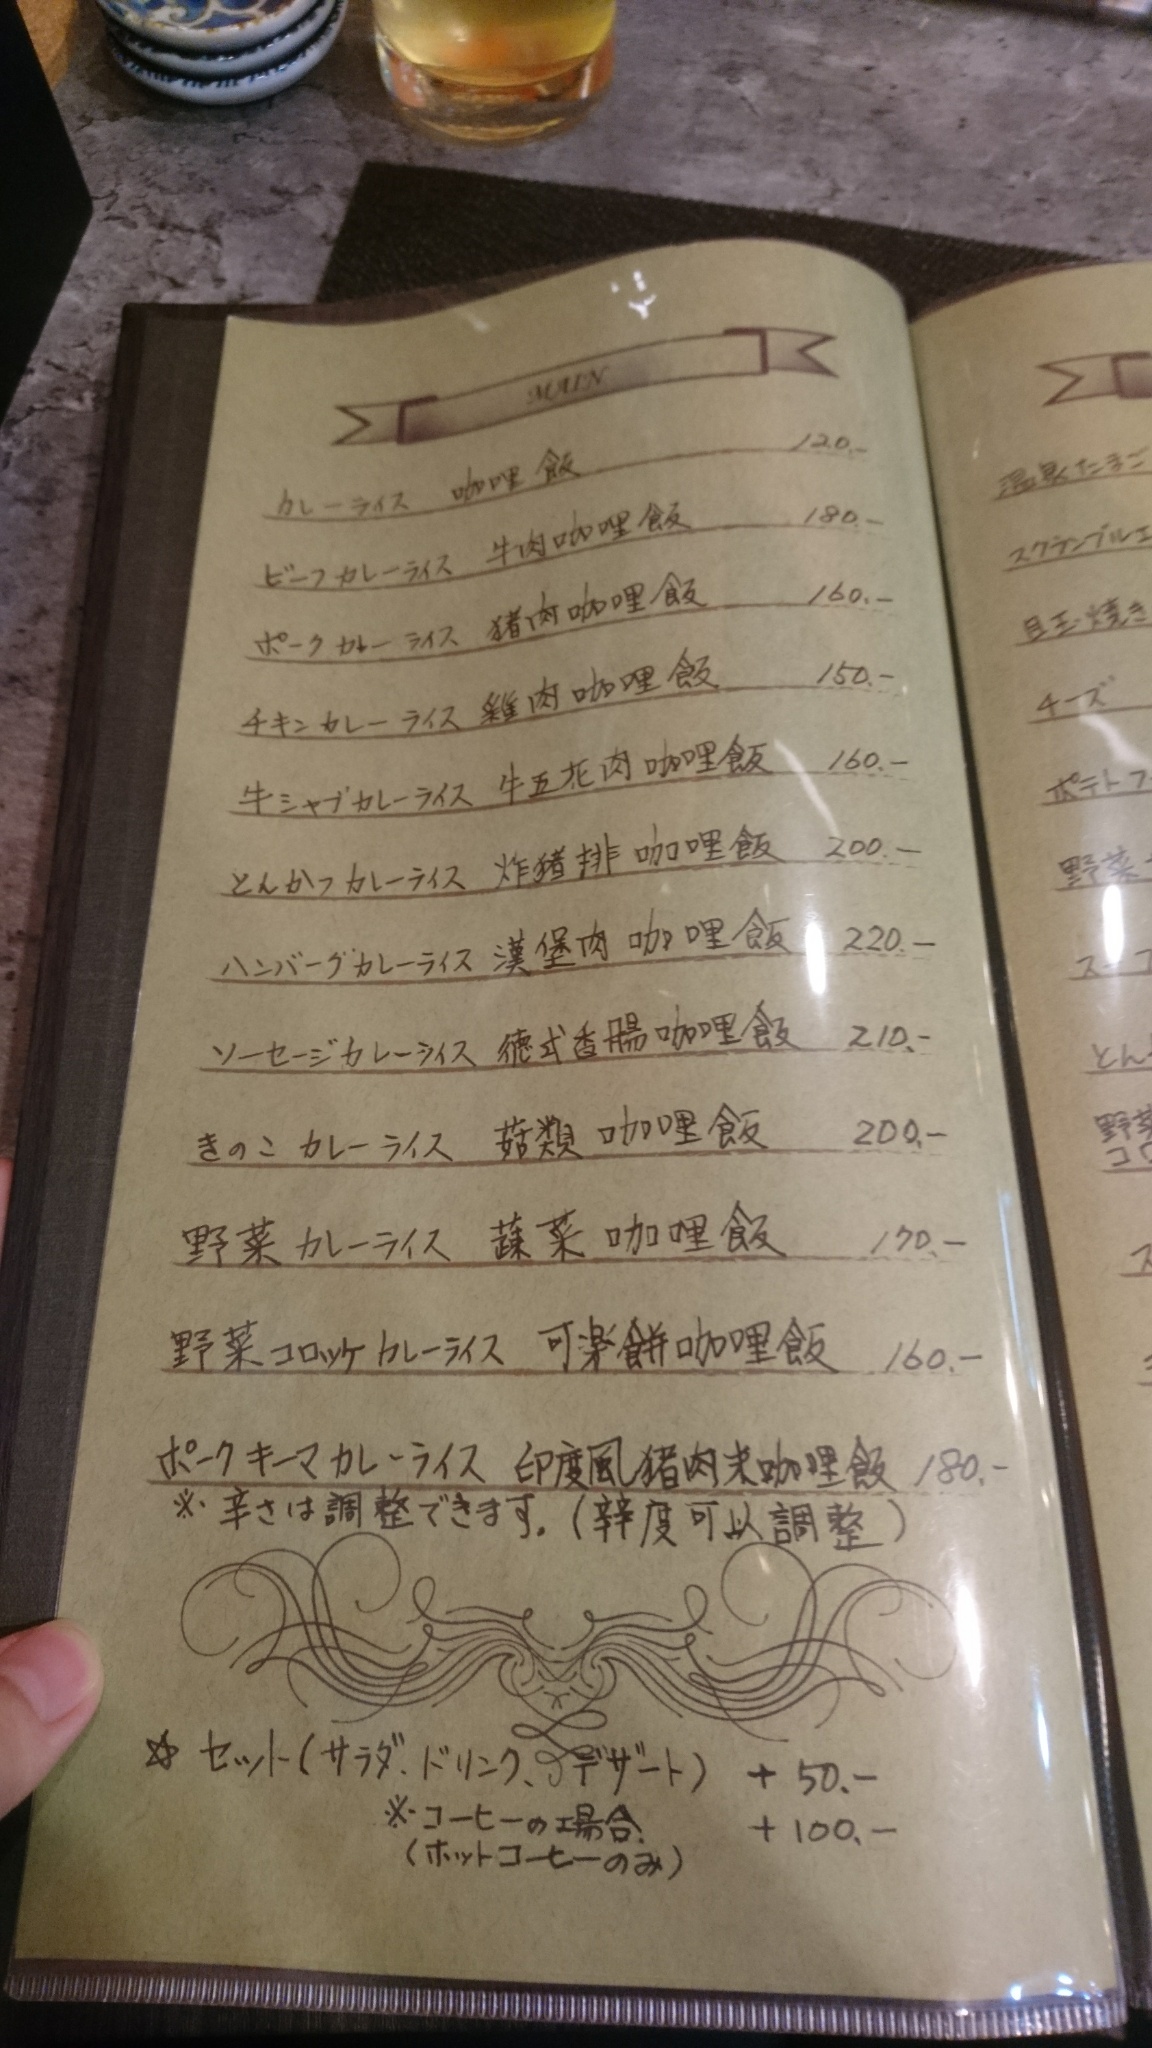 MAIN
カレーライス 咖哩飯 120.-
ビーフカレーライス 牛肉咖哩飯 180.-
ポークカレーライス 猪肉咖哩飯 160.-
チキンカレーライス 雞肉咖哩飯 150.-
牛シャブカレーライス 牛五花肉咖哩飯 160.-
とんかつカレーライス 炸猪排咖哩飯 200.-
ハンバーグカレーライス 漢堡肉咖哩飯 220.-
ソーセージカレーライス 德式香腸咖哩飯 210.-
きのこカレーライス 菇類咖哩飯 200.-
野菜カレーライス 蔬菜咖哩飯 170.-
野菜コロッケカレーライス 可楽餅咖哩飯 160.-
ポークキーマカレーライス 印度風猪肉末咖哩飯 180.-
※辛さは調整できます。(辛度可以調整)
☆ セット(サラダ、ドリンク、デザート) +50.-
※コーヒーの場合 +100.-
(ホットコーヒーのみ)
温泉たまご
スクランブルエ
目玉焼き
チーズ
ポテトフ
野菜
スープ
とん
野菜
コロ
ス